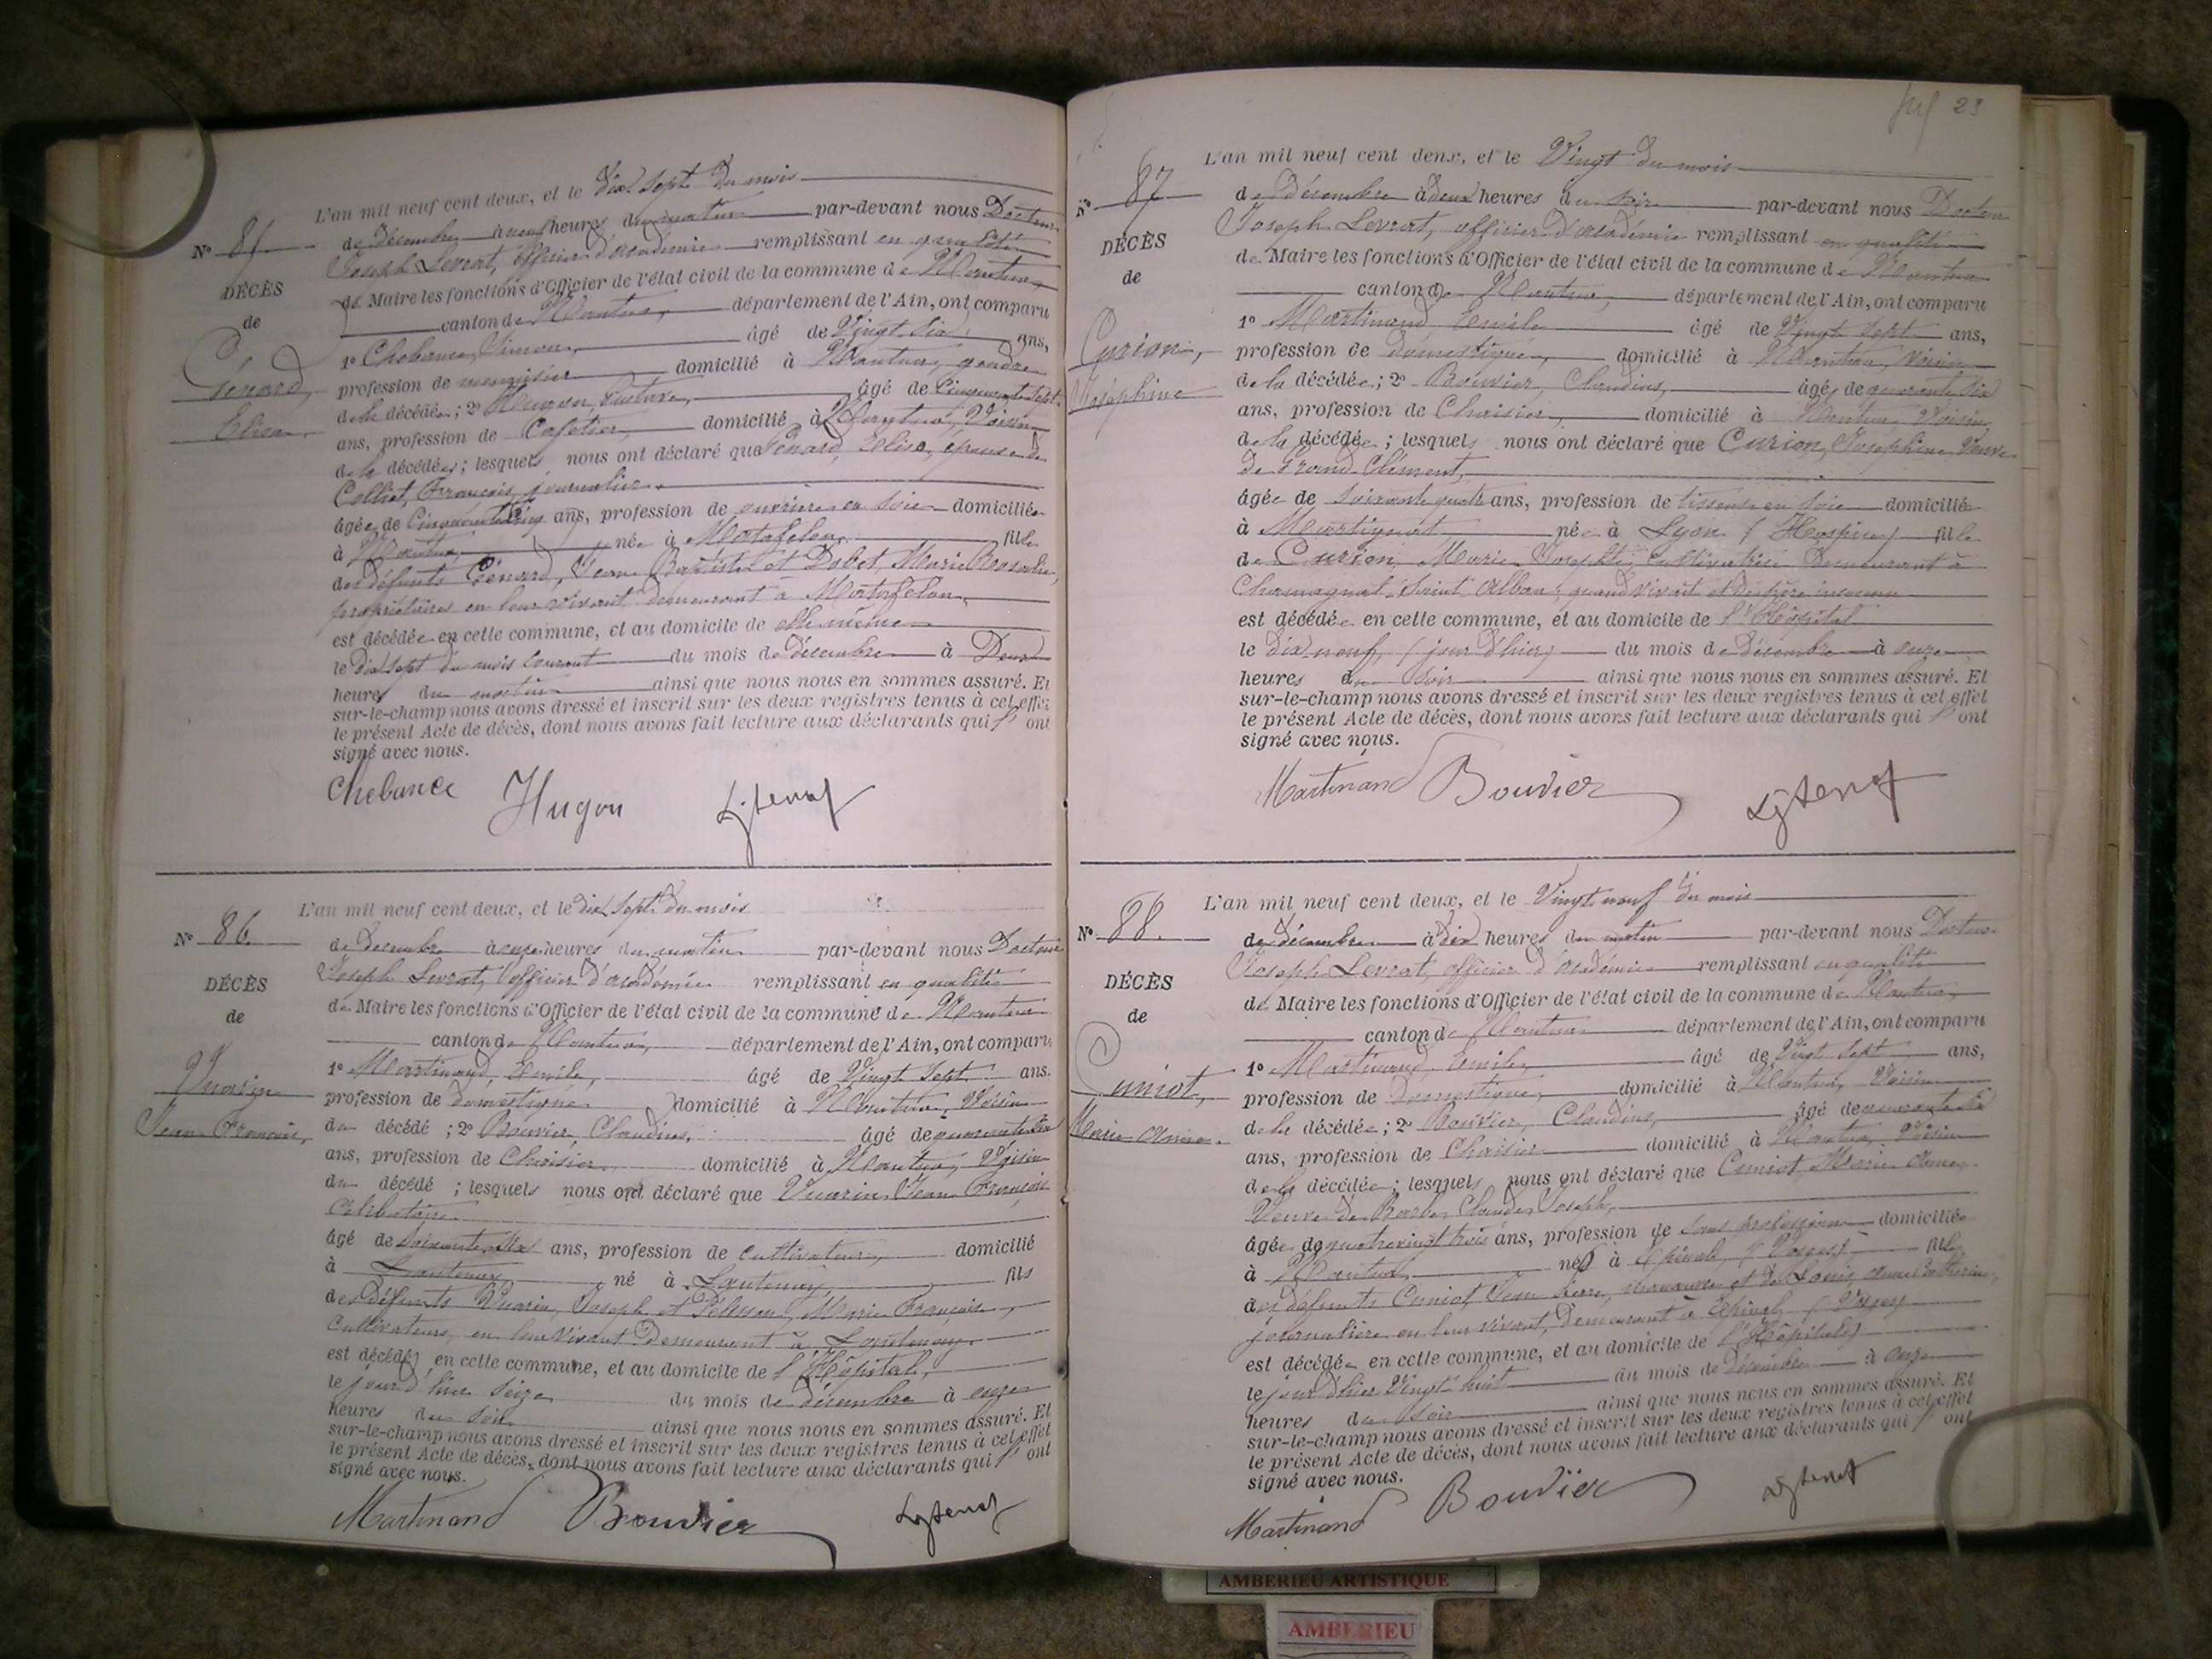 L'an mil neuf cent deux, et le dix sept du mois
Nº 85
de décembre à neuf heures du matin par-devant nous Docteur
Joseph Levrat, officier d'académie remplissant en qualité
DÉCÈS
de Maire les fonctions d'Officier de l'état civil de la commune de Nantua
de
canton de Nantua, département de l'Ain, ont comparu
1º Chebance, Simon, âgé de Vingt six ans,
Génard,
profession de menuisier domicilié à Nantua, gendre
Elisa
de la décédée; 2º Gustave, âgé de Cinquante sept
ans, profession de Cafetier, domicilié à Nantua, Voisin
de la décédée; lesquels nous ont déclaré que Génard, Elisa, épouse de
Colliet, François, journalier
âgée de Cinquante cinq ans, profession de ouvrière en soie domiciliée
à Nantua, née à Matafelon, fille
des défunts Génard, Jean Baptiste et Dobet, Marie Rosalie,
propriétaires en leur vivant demeurant à Matafelon,
est décédée en cette commune, et au domicile de elle même
le dix sept du mois courant du mois de décembre à Deux
heures du matin ainsi que nous nous en sommes assuré. Et
sur-le-champ nous avons dressé et inscrit sur les deux registres tenus à cet effet
le présent Acte de décès, dont nous avons fait lecture aux déclarants qui ont
signé avec nous.
Chebance Hugon
L'an mil neuf cent deux, et le dix sept du mois
Nº 86.
de décembre à onze heures du matin par-devant nous Docteur
Joseph Levrat, officier d'académie remplissant en qualité
DÉCÈS
de Maire les fonctions d'Officier de l'état civil de la commune de Nantua
de
canton de Nantua, département de l'Ain, ont comparu
1º Martinand, Emile, âgé de Vingt sept ans.
Vuarin
profession de domestique domicilié à Nantua, Voisin
Jean François,
du décédé; 2º Bouvier, Claudius, âgé de quarante six
ans, profession de Chaisier domicilié à Nantua, Voisin
du décédé; lesquels nous ont déclaré que Vuarin, Jean François
Célibataire
âgé de soixante ans, profession de cultivateur, domicilié
à Lantenay né à Lantenay fils
des défunts Vuarin, Joseph et Marie Françoise,
Cultivateurs, en leur vivant demeurant à Lantenay.
est décédé en cette commune, et au domicile de l'Hôpital,
le jour d'hier seize du mois de décembre à onze
heures du soir ainsi que nous nous en sommes assuré. Et
sur-le-champ nous avons dressé et inscrit sur les deux registres tenus à cet effet
le présent Acte de décès, dont nous avons fait lecture aux déclarants qui ont
signé avec nous.
Martinand Bouvier
23
L'an mil neuf cent deux, et le Vingt du mois
Nº 87
de décembre à deux heures du soir par-devant nous Docteur
Joseph Levrat, officier d'académie remplissant en qualité
DÉCÈS
de Maire les fonctions d'Officier de l'état civil de la commune de Nantua
de
canton de Nantua, département de l'Ain, ont comparu
1º Martinand, Emile âgé de Vingt sept ans,
Curion,
profession de domestique, domicilié à Nantua, Voisin
Joséphine
de la décédée; 2º Bouvier, Claudius, âgé de quarante six
ans, profession de Chaisier, domicilié à Nantua, Voisin,
de la décédée; lesquels nous ont déclaré que Curion, Joséphine, Veuve
de Grand-Clément,
âgée de soixante quatre ans, profession de tisseuse en soie domiciliée
à Martignat née à Lyon (Hospice) fille
de Curion, Marie Josephte, cultivatrice demeurant à
Charnagnat Saint Alban, quand vivait et de père inconnu
est décédée en cette commune, et au domicile de l'Hôpital
le dix neuf, (jour d'hier) du mois de décembre à onze
heures du soir ainsi que nous nous en sommes assuré. Et
sur-le-champ nous avons dressé et inscrit sur les deux registres tenus à cet effet
le présent Acte de décès, dont nous avons fait lecture aux déclarants qui ont
signé avec nous.
Martinand Bouvier
L'an mil neuf cent deux, et le Vingt neuf du mois
Nº 88.
de décembre à dix heures du matin par-devant nous Docteur
Joseph Levrat, officier d'académie remplissant en qualité
DÉCÈS
de Maire les fonctions d'Officier de l'état civil de la commune de Nantua,
de
canton de Nantua département de l'Ain, ont comparu
1º Martinand, Emile, âgé de Vingt sept ans,
Cuniot,
profession de Domestique, domicilié à Nantua, Voisin
Marie Anne.
de la décédée; 2º Bouvier, Claudius, âgé de quarante six
ans, profession de Chaisier domicilié à Nantua, Voisin
de la décédée; lesquels nous ont déclaré que Cuniot, Marie Anne,
Veuve de Claude Joseph,
âgée de quatre vingt trois ans, profession de sans profession domiciliée
à Nantua née à Epinal, (Vosges) fille
des défunts Cuniot, Jean Pierre, manœuvre et de Louis, Anne Catherine,
journalière en leur vivant, demeurant à Epinal (Vosges)
est décédée en cette commune, et au domicile de l'Hôpital
le jour d'hier Vingt huit du mois de décembre à onze
heures du soir ainsi que nous nous en sommes assuré. Et
sur-le-champ nous avons dressé et inscrit sur les deux registres tenus à cet effet
le présent Acte de décès, dont nous avons fait lecture aux déclarants qui ont
signé avec nous.
Martinand Bouvier
AMBERIEU ARTISTIQUE
AMBERIEU